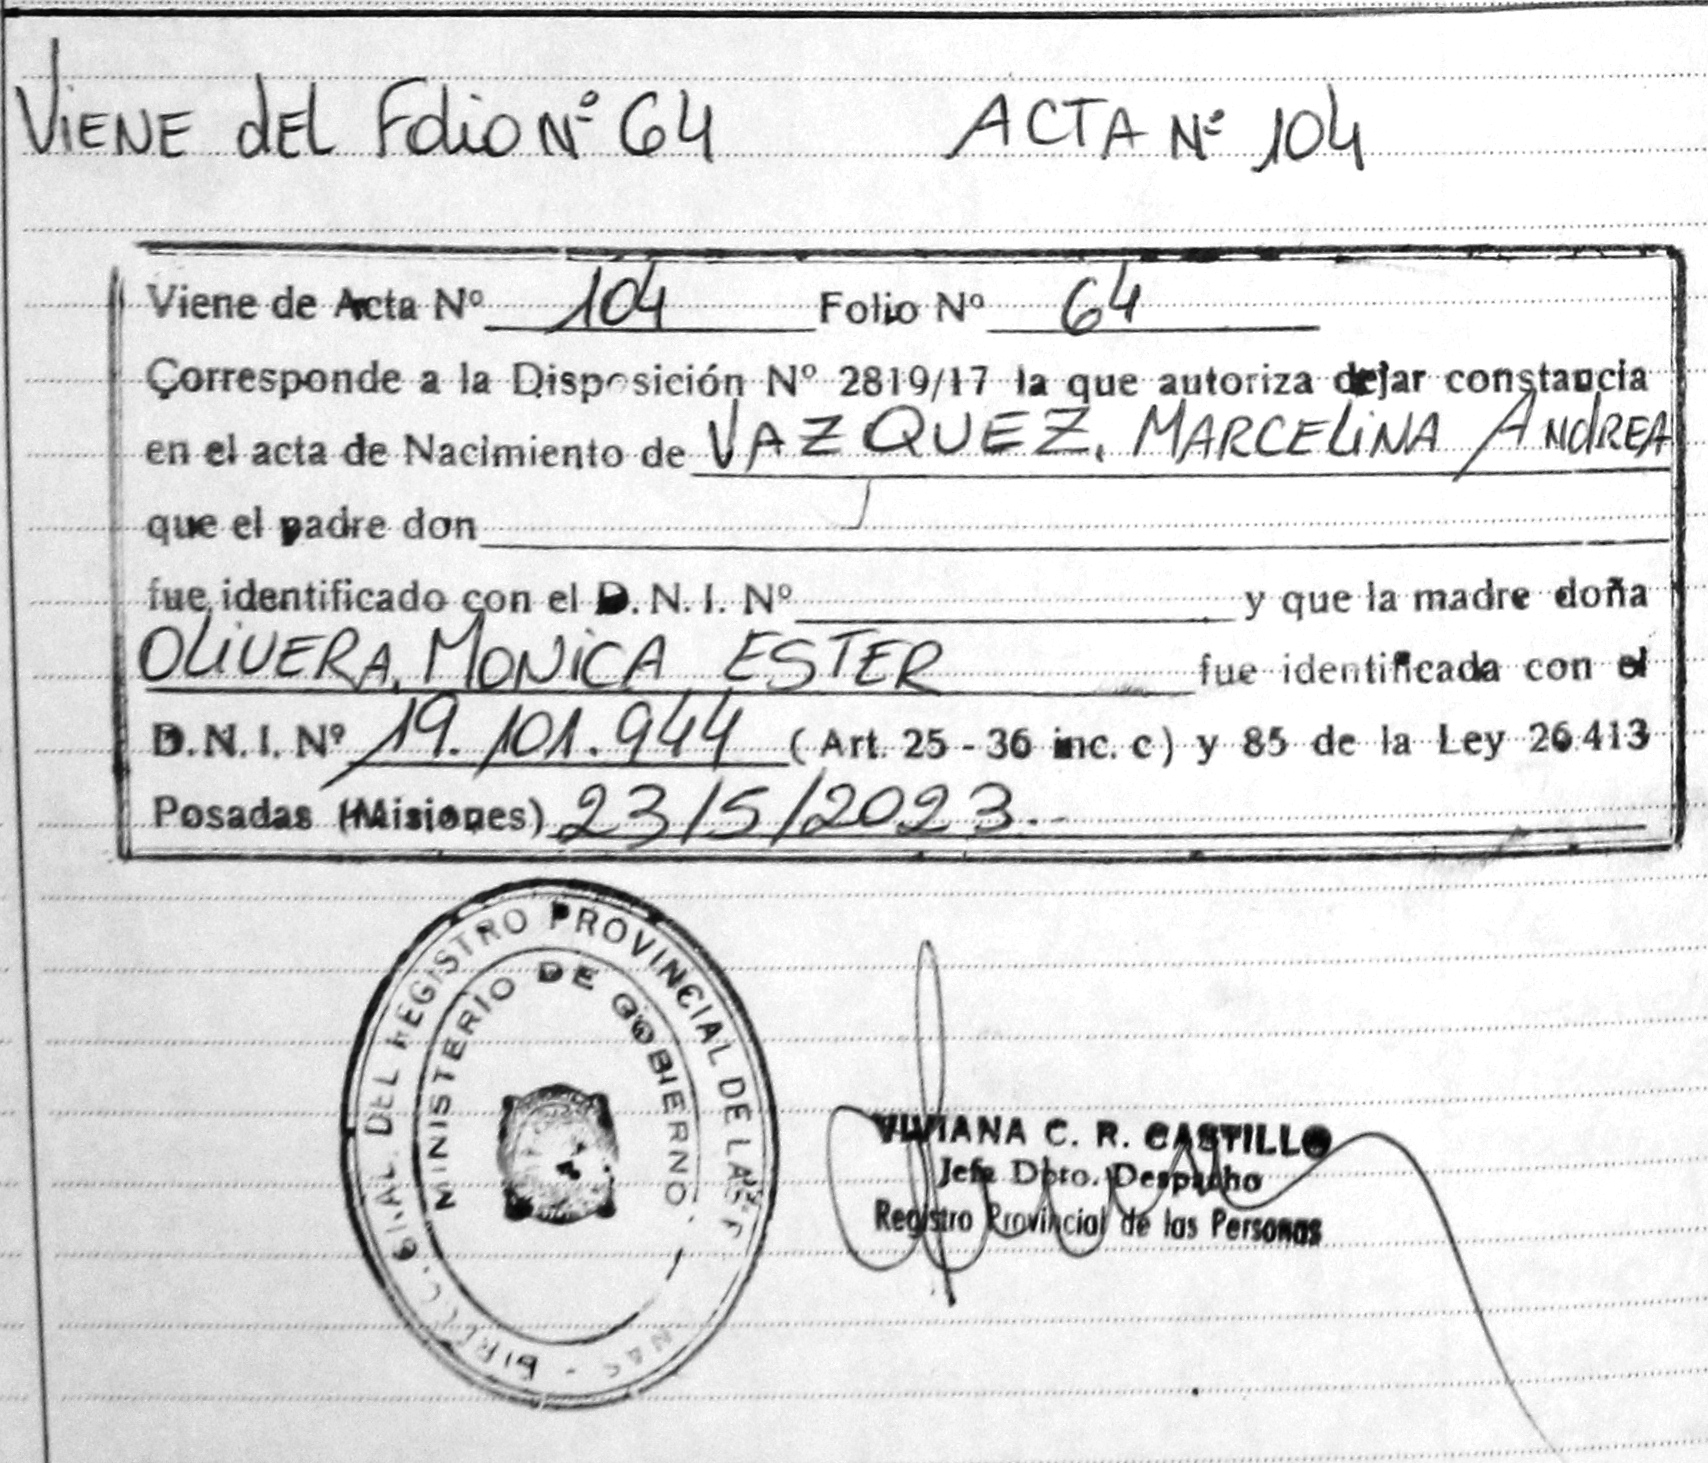 VIENE dEL Folio Nº 64 ACTA Nº 104
Viene de Acta Nº 104 Folio Nº 64
Corresponde a la Disposición Nº 2819/17 la que autoriza dejar constancia
en el acta de Nacimiento de VAZQUEZ, MARCELINA ANDREA
que el padre don
fue identificado con el D. N. I. Nº y que la madre doña
OLIVERA, MONICA ESTER fue identificada con el
D. N. I. Nº 19.101.944 (Art. 25 - 36 inc. c) y 85 de la Ley 26413
Posadas (Misiones) 23/5/2023.-
GRAL. DEL REGISTRO PROVINCIAL DE LAS
MINISTERIO DE GOBIERNO
VIVIANA C. R. CASTILLO
Jefe Dpto. Despacho
Registro Provincial de las Personas